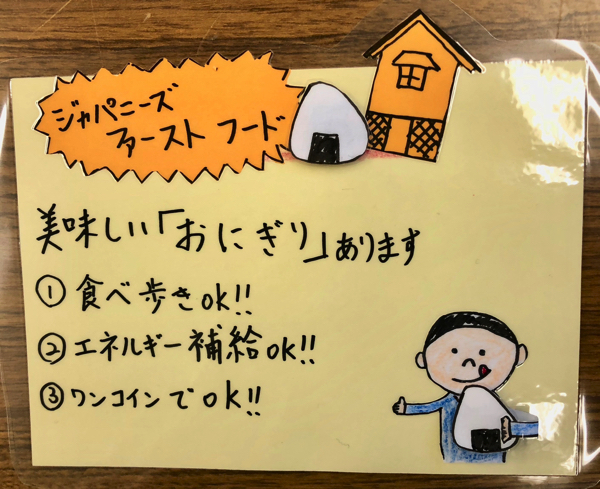 ジャパニーズ
ファースト フード
美味しい「おにぎり」あります
① 食べ歩きok!!
② エネルギー補給ok!!
③ ワンコインでok!!